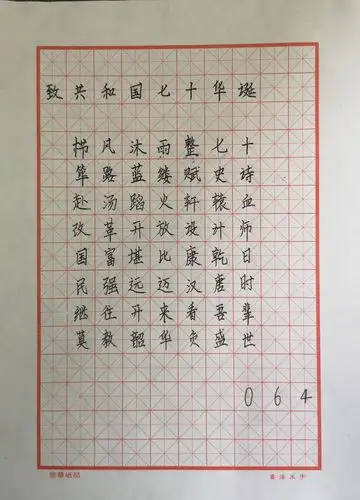 致共和国七十华诞
栉风沐雨整七十
筚路蓝缕赋史诗
赴汤蹈火轩辕血
改革开放设计师
国富堪比康乾日
民强远迈汉唐时
继往开来看吾辈
莫教韶华负盛世
064